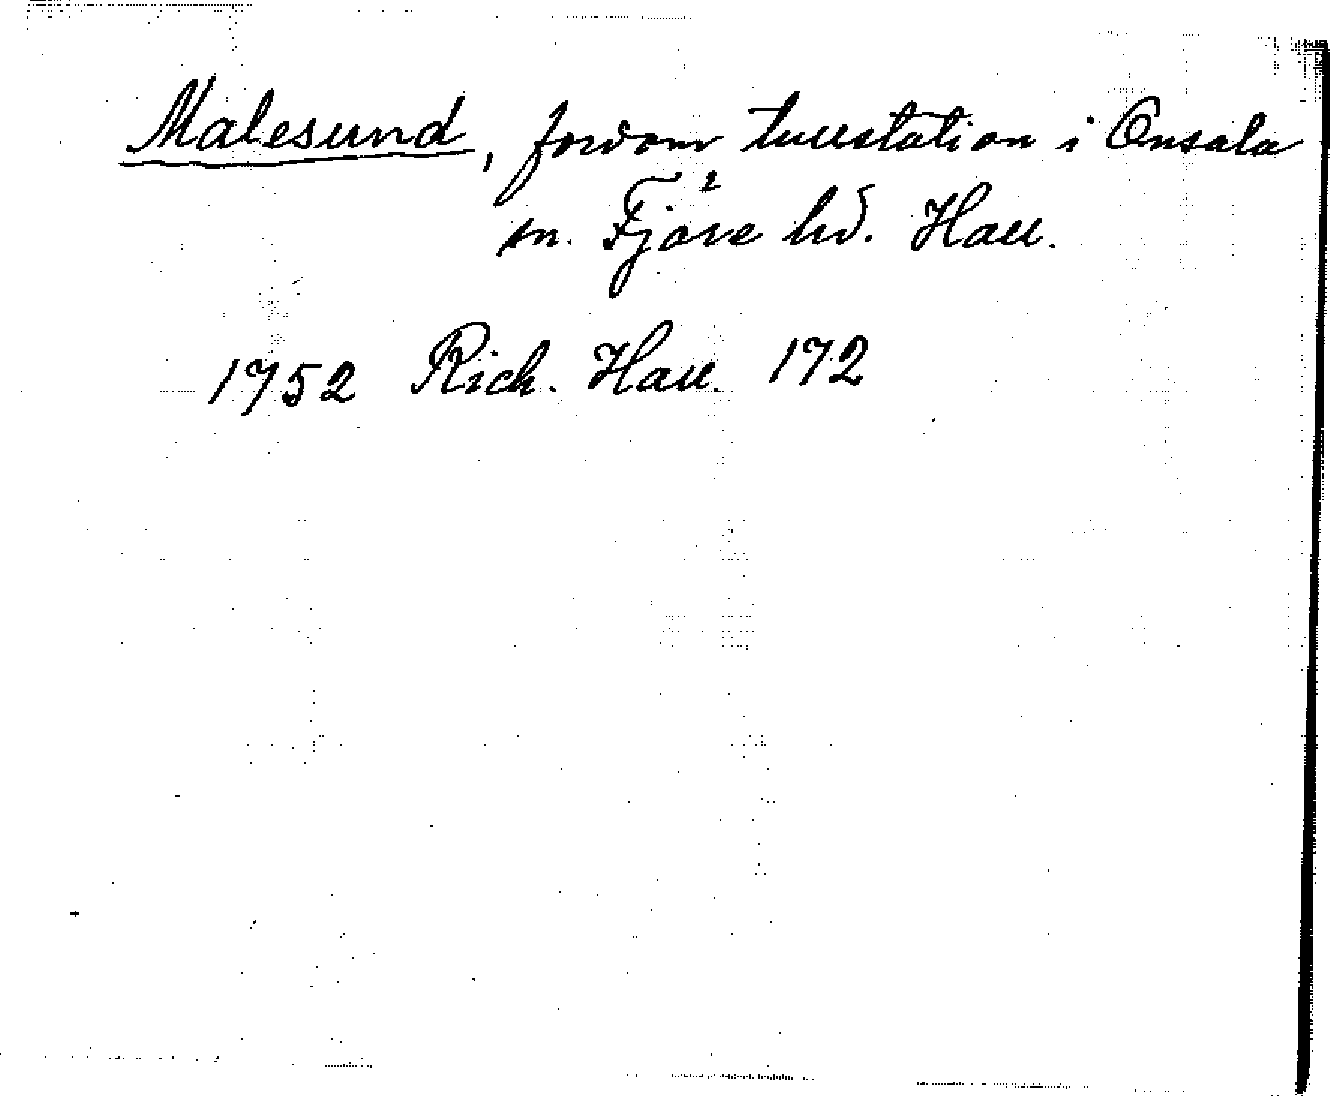 Malesund, fordom tullstation i Onsala
sn. Fjäre hd. Hall.
1752 Rich. Hall. 172